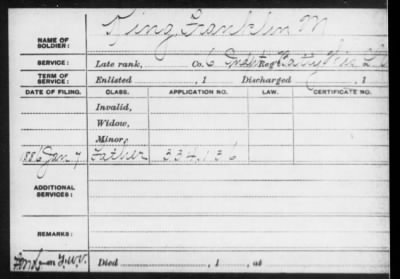 King, Franklin M
NAME OF SOLDIER:
SERVICE: Late rank, Co. 6 Indpt Batty Wis L A
TERM OF SERVICE: Enlisted , 1 Discharged , 1
DATE OF FILING. CLASS. APPLICATION NO. LAW. CERTIFICATE NO.
Invalid,
Widow,
Minor,
1886 Jan. 7 Father 334,136
ADDITIONAL SERVICES:
REMARKS:
Died , 1 , at